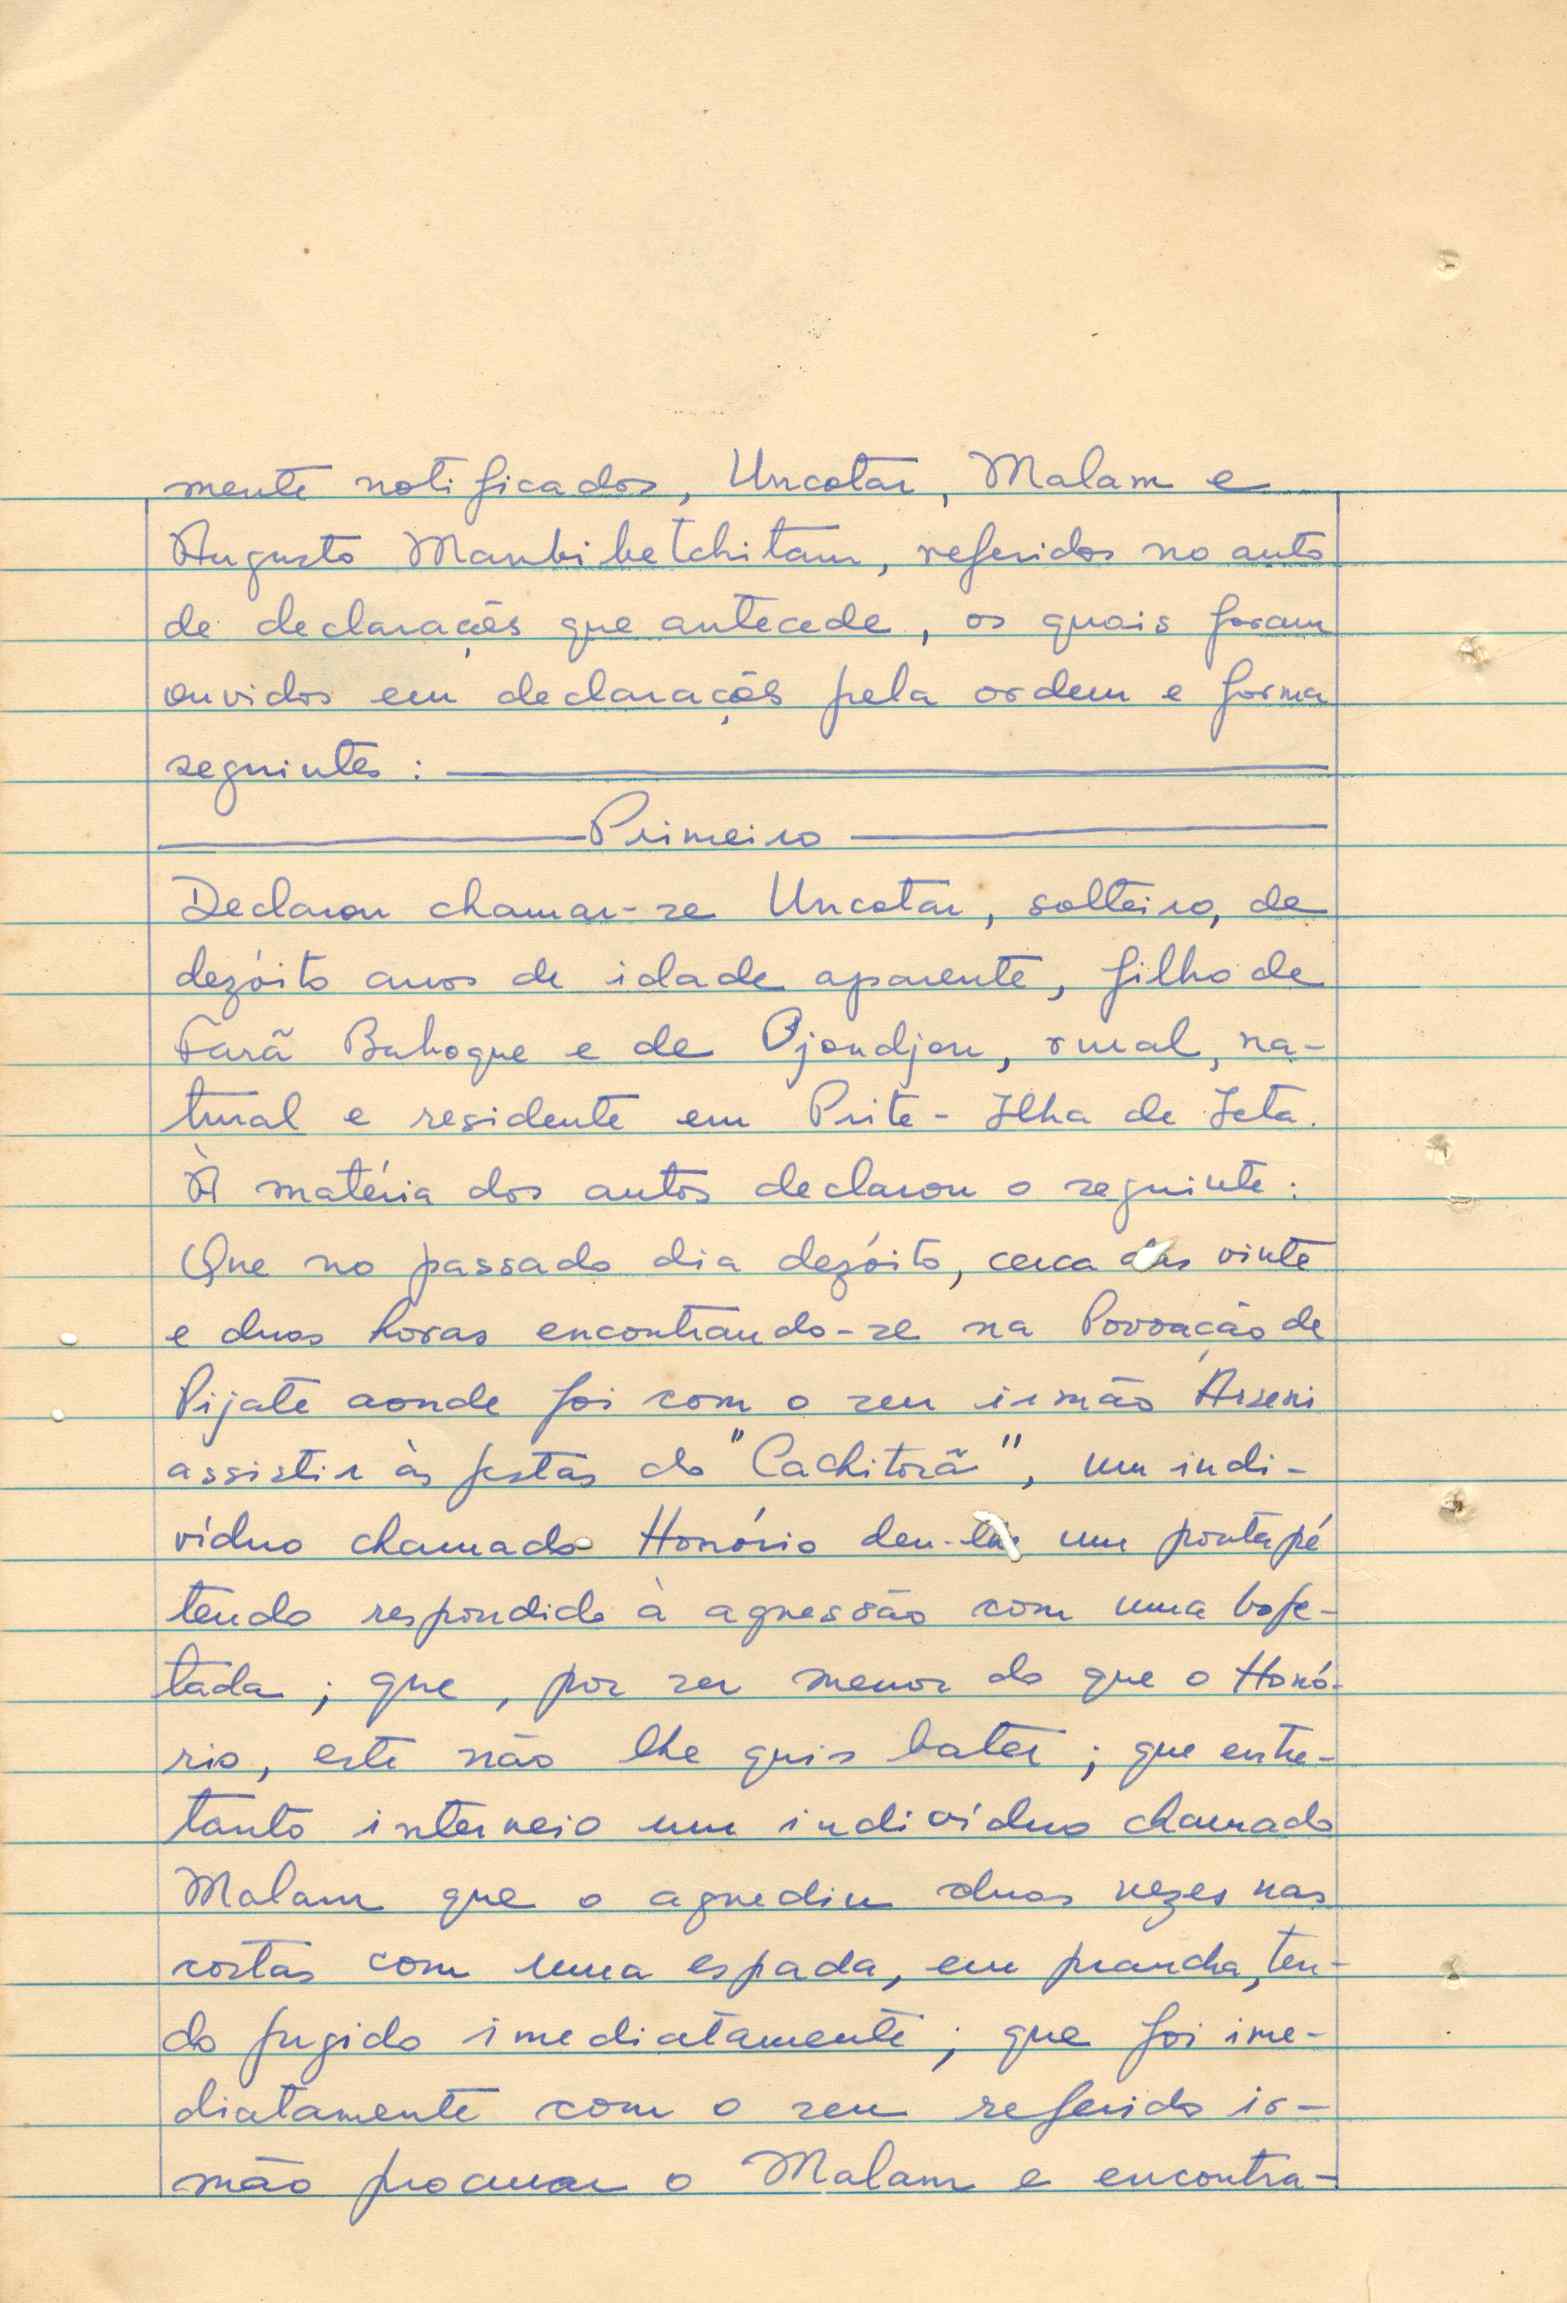 mente notificados, Uncotar, Malam e
Augusto Manbibetchitam, referidos no auto
de declarações que antecede, os quais foram
ouvidos em declarações pela ordem e forma
seguintes:
Primeiro
Declarou chamar-se Uncotar, solteiro, de
dezóito anos de idade aparente, filho de
Farã Buhoque e de Djondjou, rural, na-
tural e residente em Prite - Ilha de Jeta.
À matéria dos autos declarou o seguinte:
Que no passado dia dezóito, cerca das vinte
e duas horas encontrando-se na Povoação de
Pijate aonde foi com o seu irmão Arseni
assistir às festas do "Cachitorã", um indi-
víduo chamado Honório deu-lhe um pontapé
tendo respondido à agressão com uma bofe-
tada; que, por ser menor do que o Honó-
rio, este não lhe quis bater; que entre-
tanto interveio um indivíduo chamado
Malam que o agrediu duas vezes nas
costas com uma espada, em prancha, ten-
do fugido imediatamente; que foi ime-
diatamente com o seu referido ir-
mão procurar o Malam e encontra-